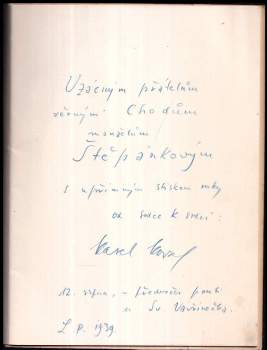 Vzácným přátelům
věrným Chodům
manželům
Štěpánkovým
s upřímným stiskem ruky
od srdce k srdci:
Karel
12. srpna, – předvečer pouti
u Sv. Vavřinečka.
L. P. 1939